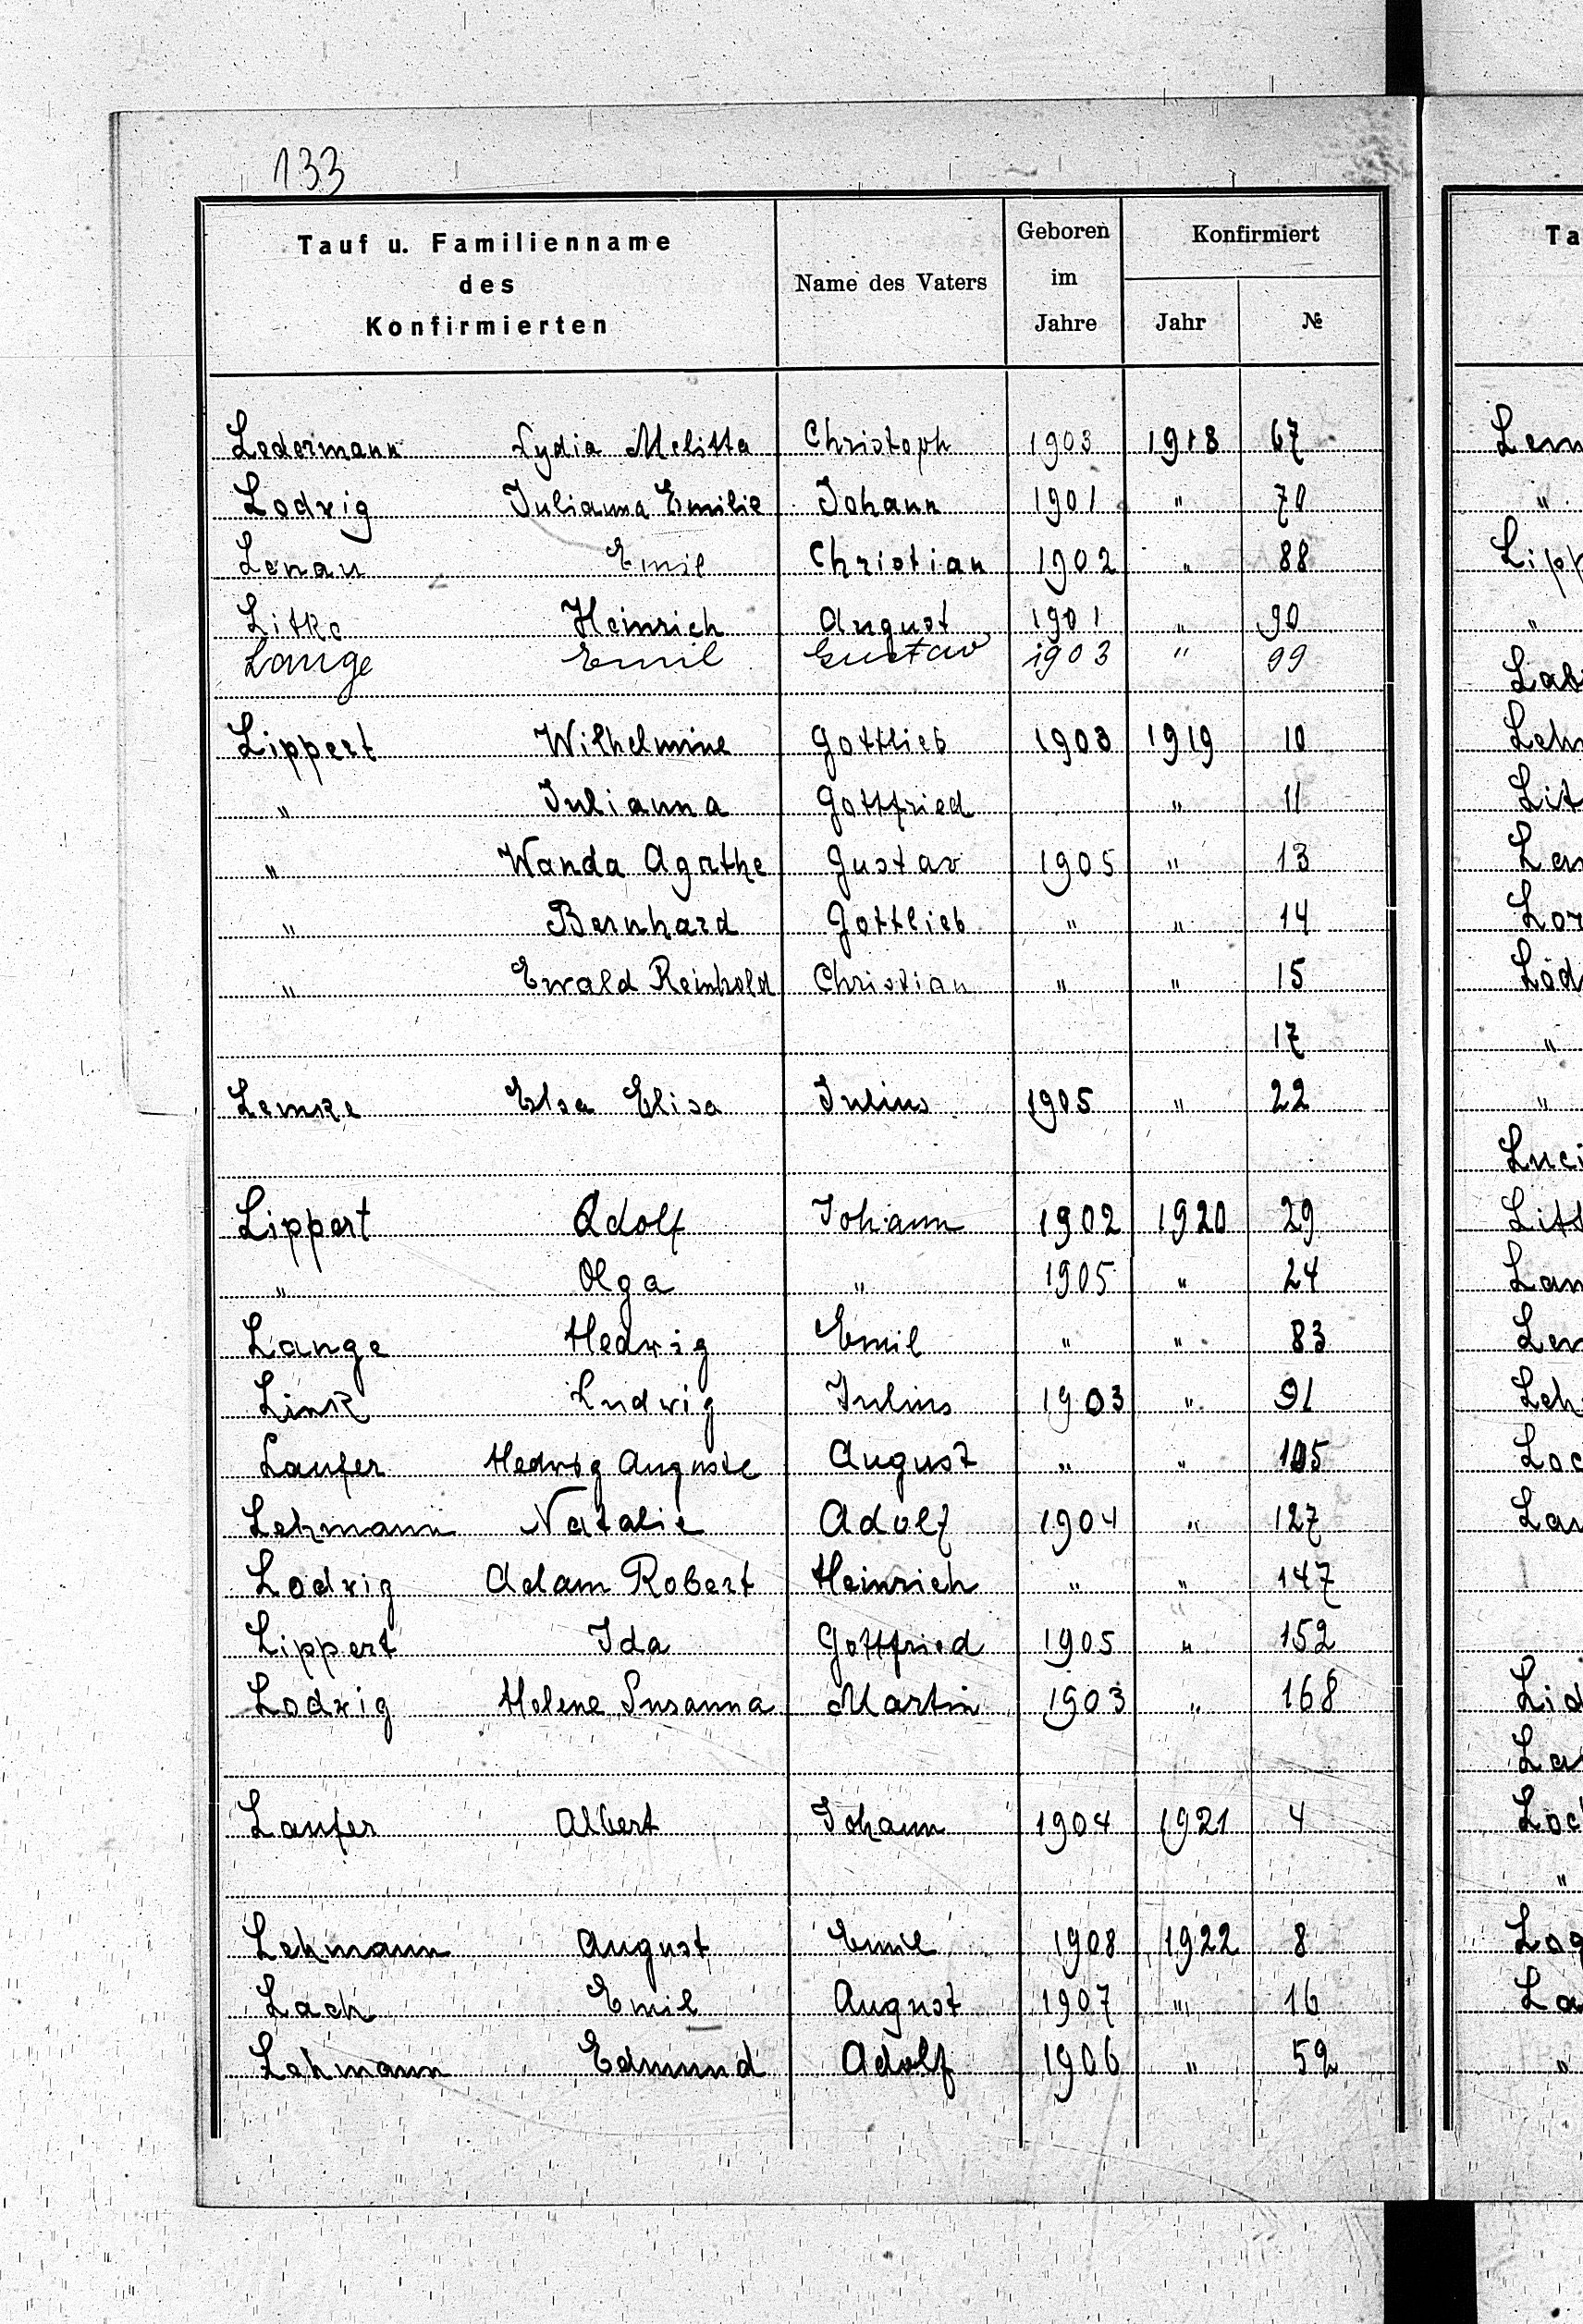 133
Tauf u. Familienname des Konfirmierten | Name des Vaters | Geboren im Jahre | Konfirmiert Jahr | №
Ledermann Lydia Melitta Christoph 1903 1918 67
Lodwig Julianna Emilie Johann 1901 " 70
Lenau Emil Christian 1902 " 88
Litke Heinrich August 1901 " 90
Lange Emil Gustav 1903 " 99
Lippert Wilhelmine Gottlieb 1903 1919 10
" Julianna Gottfried " 11
" Wanda Agathe Gustav 1905 " 13
" Bernhard Gottlieb " " 14
" Ewald Reinhold Christian " " 15
17
Lemke Elsa Elisa Julius 1905 " 22
Lippert Adolf Johann 1902 1920 29
" Olga " 1905 " 24
Lange Hedwig Emil " " 83
Link Ludwig Julius 1903 " 91
Laufer Hedwig Auguste August " " 105
Lehmann Natalie Adolf 1904 " 127
Lodwig Adam Robert Heinrich " " 147
Lippert Ida Gottfried 1905 " 152
Lodwig Helene Susanna Martin 1903 " 168
Laufer Albert Johann 1904 1921 4
Lehmann August Emil 1908 1922 8
Lach Emil August 1907 " 16
Lehmann Edmund Adolf 1906 " 52